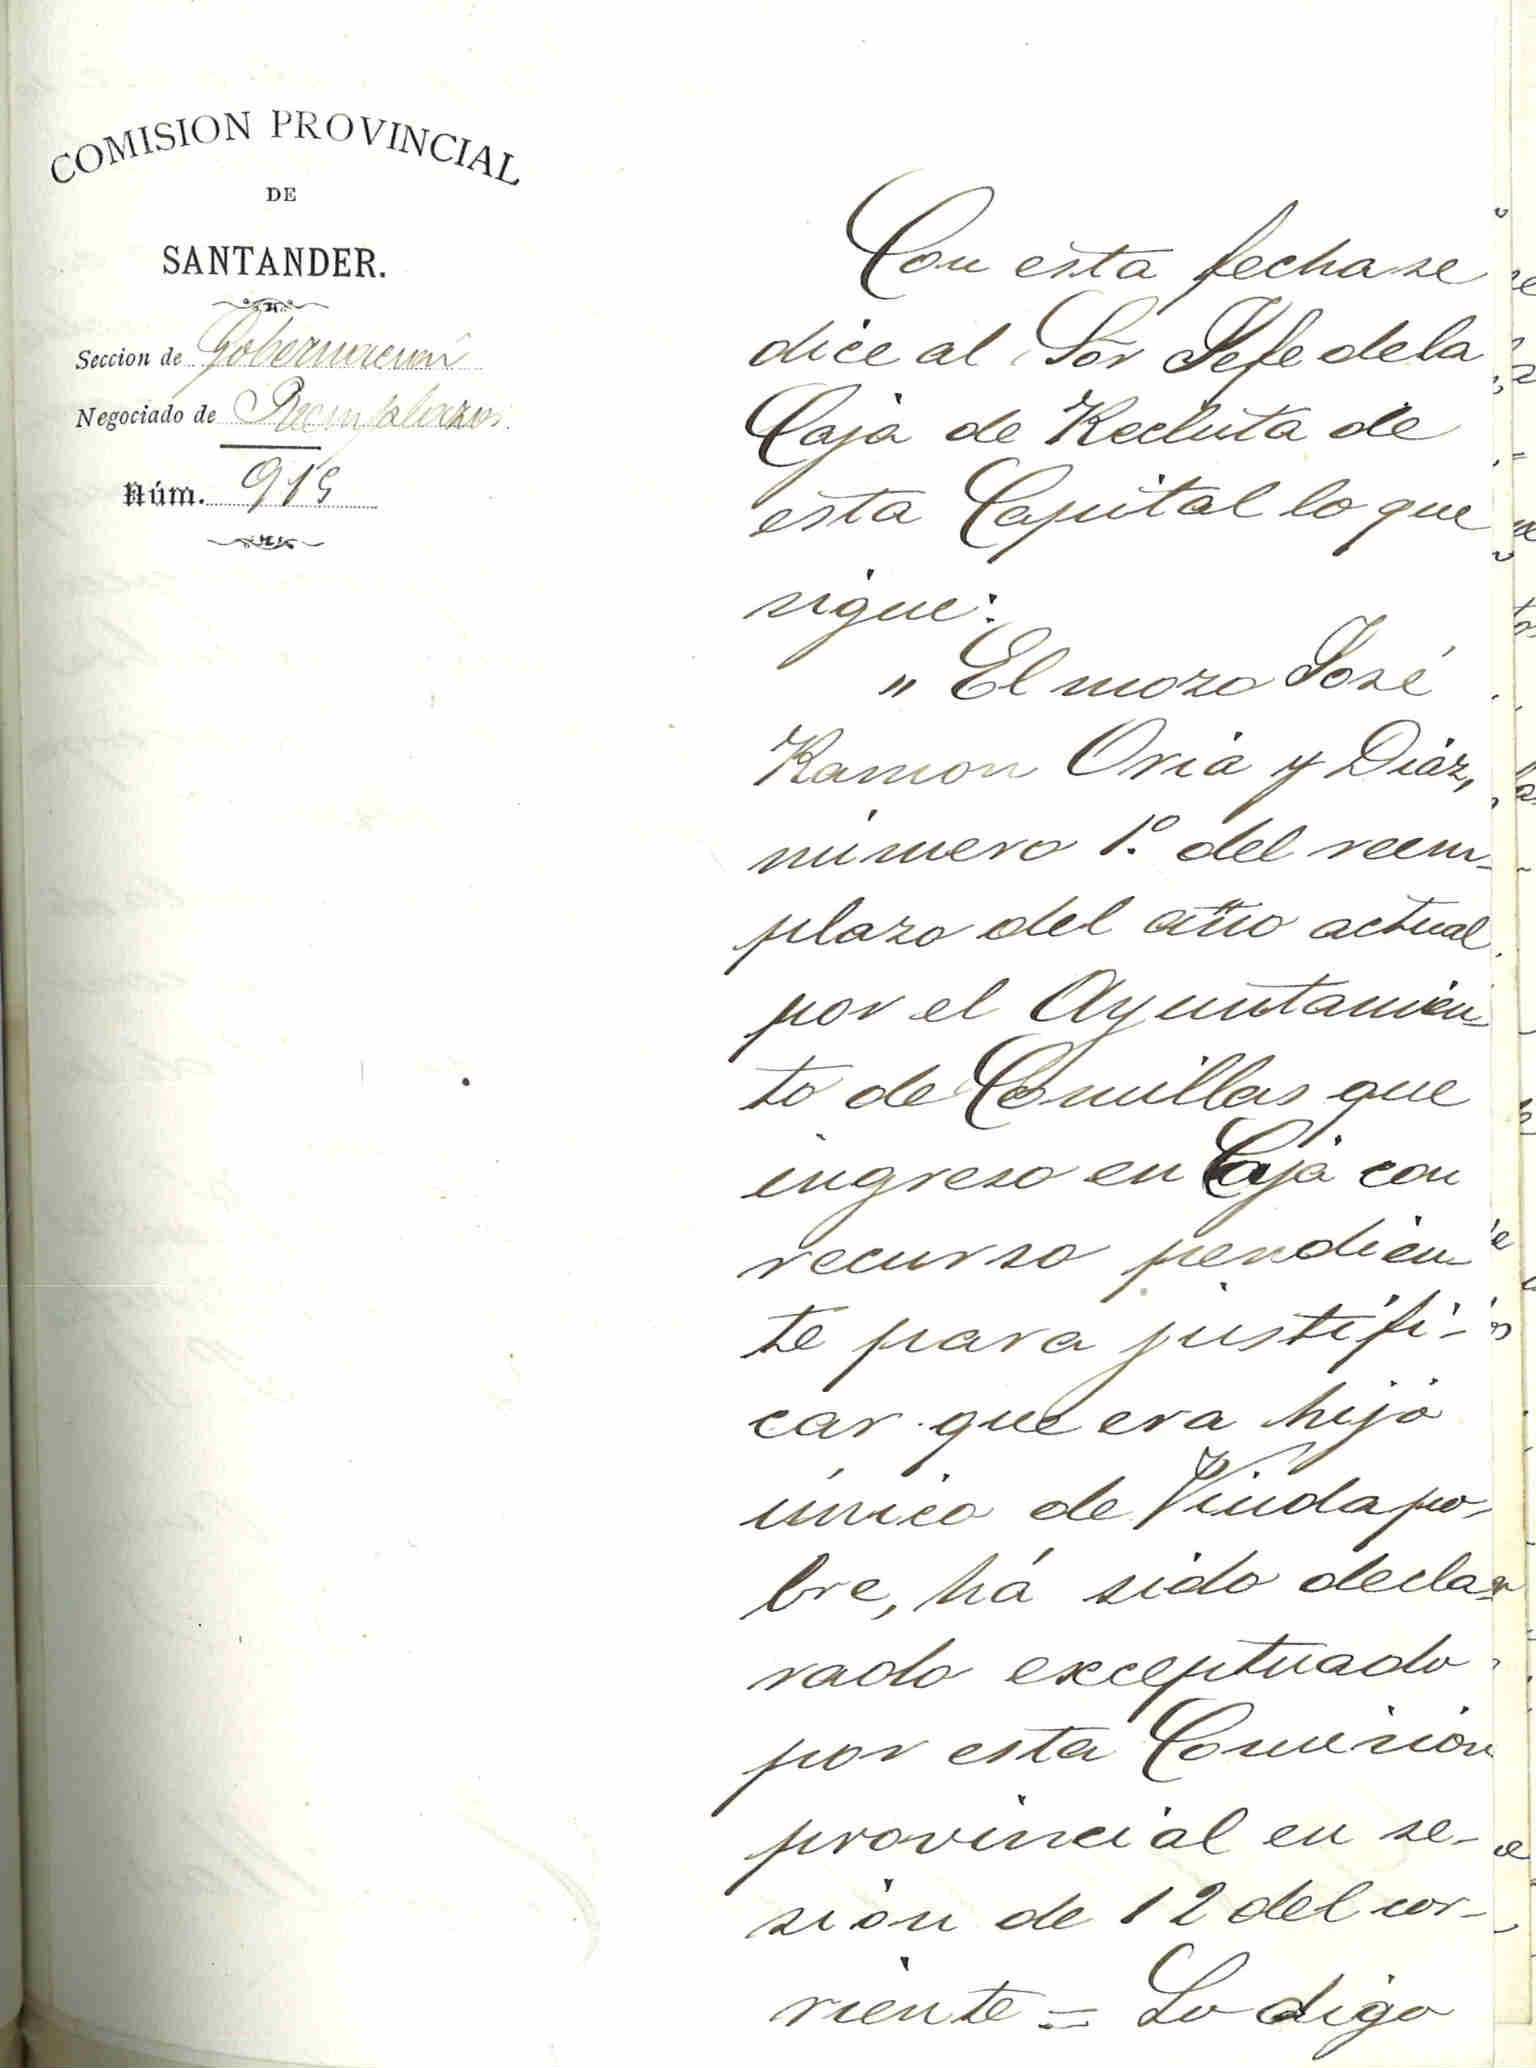 COMISION PROVINCIAL
DE
SANTANDER.
Seccion de Gobernacion
Negociado de Reemplazos.
Núm. 919
Con esta fecha se
dice al Sor Jefe de la
Caja de Recluta de
esta Capital lo que
sigue:
"El mozo José
Ramon Oria y Diáz,
número 1.º del reem-
plazo del año actual
por el Ayuntamien-
to de Comillas que
ingreso en Caja con
recurso pendien-
te para justifi-
car que era hijo
único de Viuda po-
bre, há sido decla-
rado exceptuado
por esta Comisión
provincial en se-
sión de 12 del cor-
riente = Lo digo